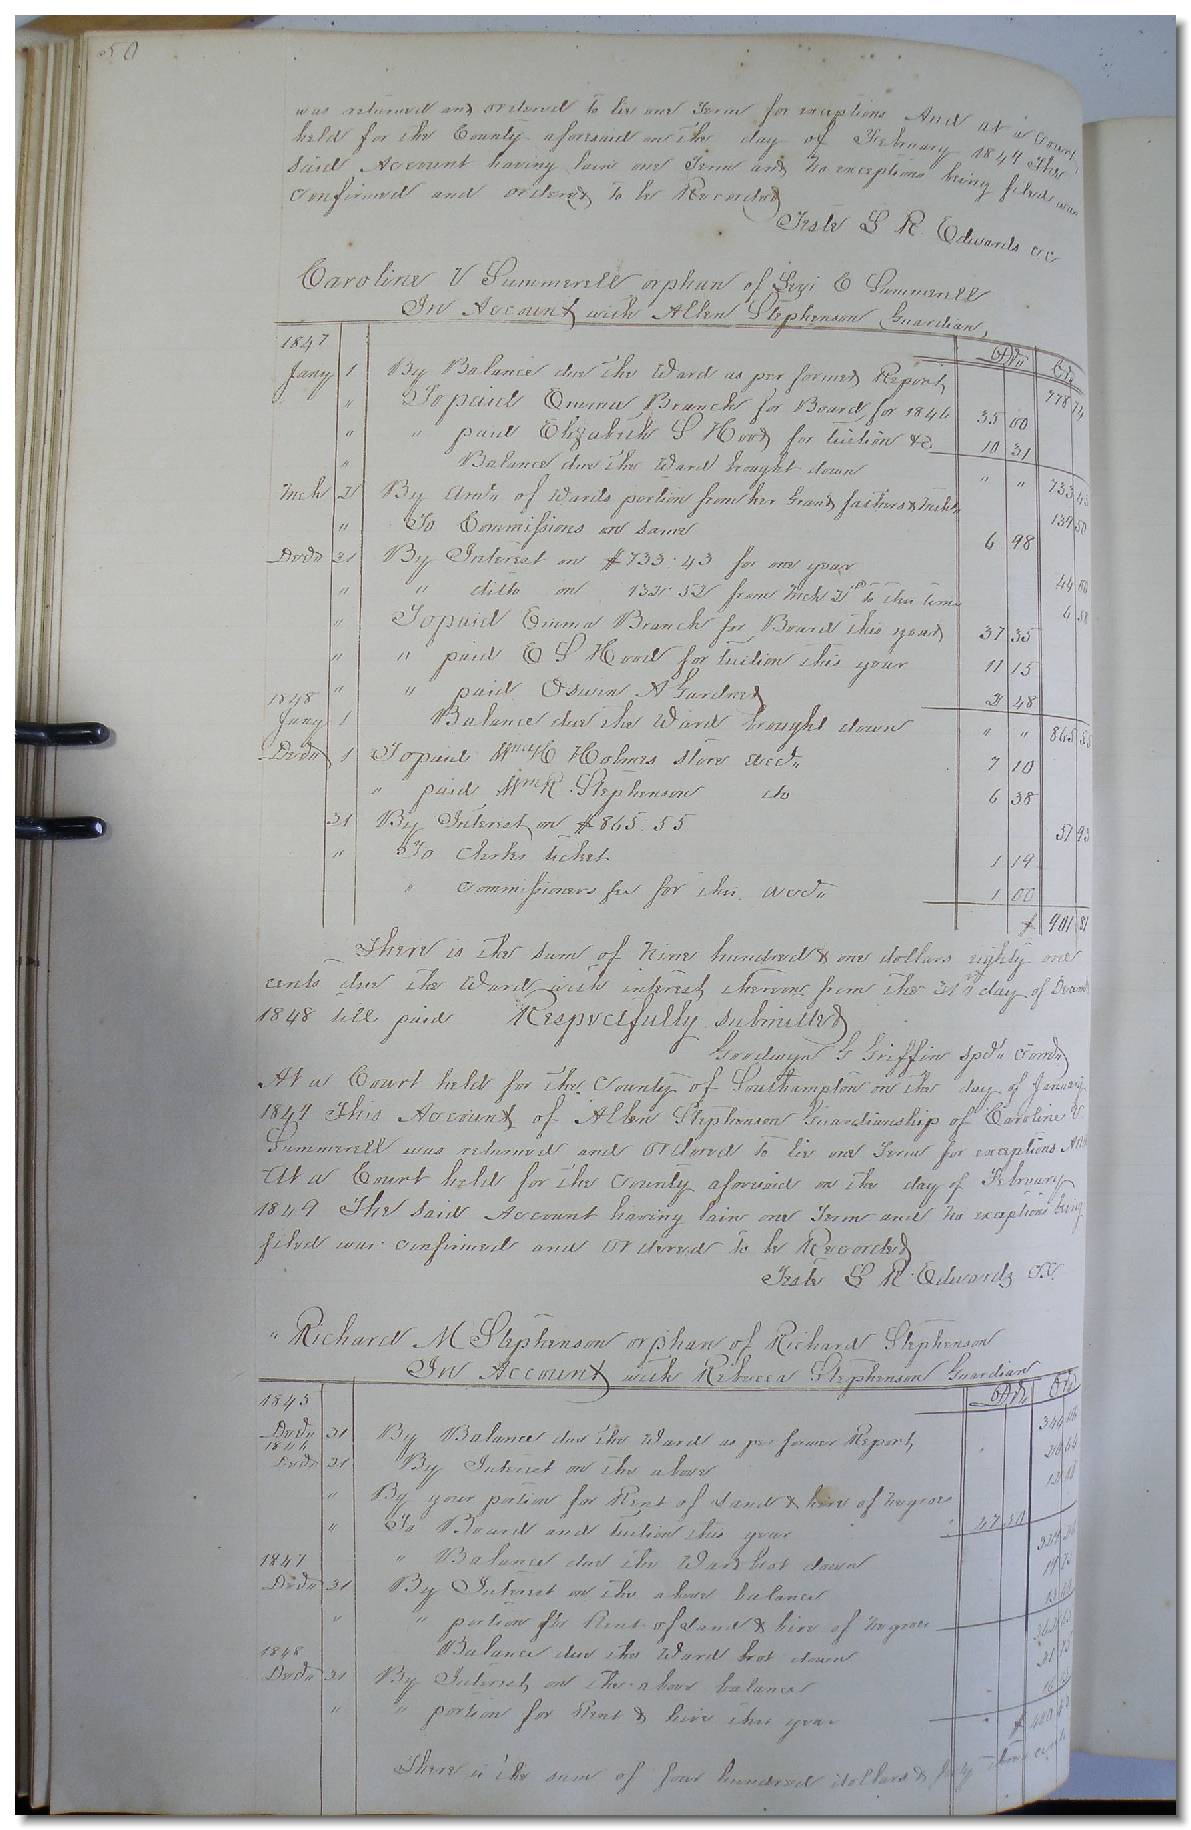 50
was returned and ordered to lie one Term for exceptions And at a Court
held for the County aforesaid on the day of February 1849 This
said Account having lain one Term and no exceptions being filed was
Confirmed and ordered to be Recorded
Teste L R Edwards CC
Caroline V Summerell orphan of E Summerell
In Account with Allen Stephenson Guardian,
1847 Drs Crs
Jany 1 By Balance due the Ward as per former Report 778 74
" To paid Emma Branch for Board for 1846 35 00
" " paid Elizabeth S Hood for tuition &c 10 31
" Balance due the Ward brought down " " 733 43
Mch 2 By Amt of Wards portion from her Grand fathers 139 50
" To Commissions on same 6 98
Decr 31 By Interest on $733.43 for one year 44
" " ditto on 132.52 from Mch 2d to this time 6 58
" To paid Emma Branch for Board this year 37 35
" " paid E S Hood for tuition this year 11 15
" " paid Edwin A Gardner 48
1848
Jany 1 Balance due the Ward brought down " " 865 55
Decr 1 To paid Wm H Holmes store acct 7 10
" paid Wm R Stephenson do 6 38
31 By Interest on $865.55 51 93
" To Clerks ticket 1 19
" Commissioners fee for this acct 1 00
$ 901 81
There is the sum of Nine hundred & one dollars eighty one
cents due the Ward with interest thereon from the 31st day of Decem
1848 till paid Respectfully submitted
Goodwyn G Griffin spcl Comr
At a Court held for the County of Southampton on the day of January
1849 This Account of Allen Stephenson Guardianship of Caroline V
Summerell was returned and ordered to lie one Term for exceptions And
At a Court held for the County aforesaid on the day of February
1849 The said Account having lain one Term and no exceptions being
filed was confirmed and ordered to be Recorded
Teste L R Edwards CC
" Richard M Stephenson orphan of Richard Stephenson
In Account with Rebecca Stephenson Guardian
1845 Drs Crs
Decr 31 By Balance due the Ward as per former Report
1846
Decr 31 By Interest on the above
" By your portion for Rent of Land & hire of negroes
" To Board and tuition this year 47 50
" Balance due the Ward brot down
1847
Decr 31 By Interest on the above balance
" " portion for Rent of Land & hire of negroes
1848 Balance due the Ward brot down
Decr 31 By Interest on the above balance
" " portion for Rent & hire this year
There is the sum of four hundred dollars &